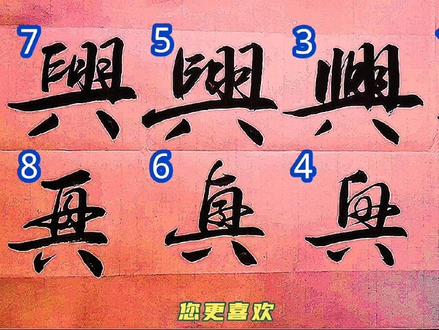 7 5 3
興 興 興
8 6 4
興 興 興
您更喜欢